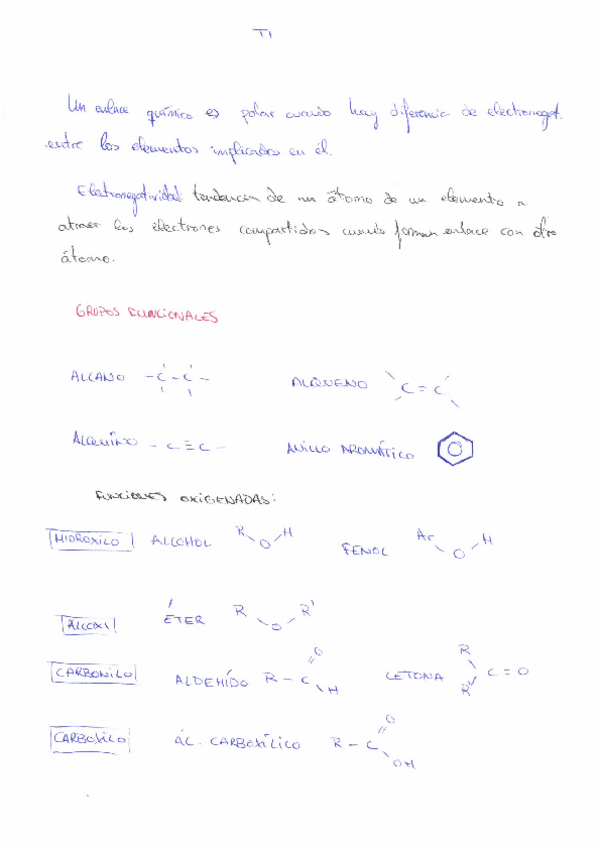 T1
Un enlace químico es polar cuando hay diferencia de electronegat.
entre los elementos implicados en él.
Electronegatividad tendencia de un átomo de un elemento a
atraer los electrones compartidos cuando forman enlace con otro
átomo.
GRUPOS FUNCIONALES
ALCANO -C-C- ALQUENO C=C
ALQUINO -C≡C- ANILLO AROMÁTICO
FUNCIONES OXIGENADAS:
HIDROXILO ALCOHOL R O H FENOL Ar O H
ALCOXI ÉTER R O R'
CARBONILO ALDEHÍDO R-C O H CETONA R R' C=O
CARBOXILO ÁC. CARBOXÍLICO R-C O OH